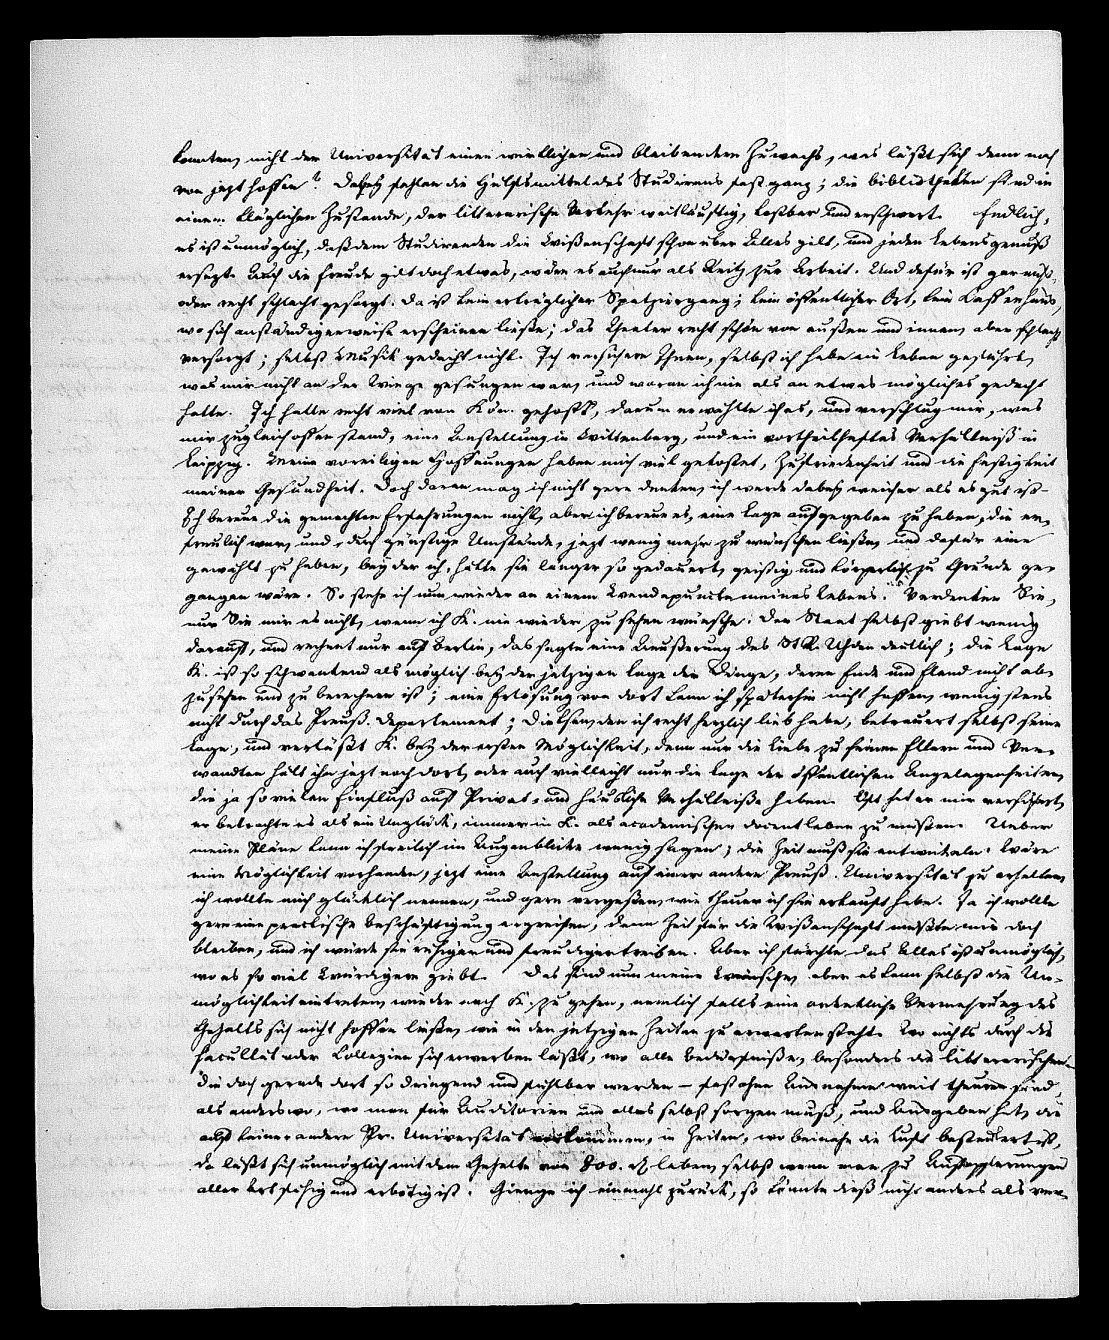 konnten, nicht der Universität einen wirklichen und bleibendern Zuwachs, was läßt sich denn noch
von jezt hoffen? Dabey fehlen die Hülfsmittel des Studirens fast ganz; die bibliotheken sind in
einem kläglichen Zustande, der litterarische Verkehr weitläuftig, kostbar und erschwert. Endlich,
es ist unmöglich, daß dem Studirenden die Wißenschaft schon über Alles gilt, und jeden Lebensgenuß
ersezt. Auch die Freude gilt doch etwas, wäre es auch nur als Reitz zur Arbeit. Und dafür ist gar nicht,
oder recht schlecht gesorgt. Da ist kein erträglicher Spatziergang; kein öffentlicher Ort, kein Caffeehaus,
wo sich anständigerweise erscheinen ließe; das Theater recht schön von außen und innen, aber schlecht
versorgt; selbst Musik gedeiht nicht. Ich versichere Ihnen, selbst ich habe ein Leben geführt,
was mir nicht an der Wiege gesungen war, und woran ich nie als an etwas mögliches gedacht
hatte. Ich hatte recht viel von Kön. gehofft, darum erwählte ich es, und verschlug mir, was
mir zugleich offen stand, eine Anstellung in Wittenberg, und ein vortheilhaftes Verhältniß in
Leipzig. Meine voreiligen Hoffnungen haben mich viel gekostet, Zufriedenheit und die Festigkeit
meiner Gesundheit. Doch daran mag ich nicht gern denken, ich werde dabey weicher als es gut ist –
Ich bereue die gemachten Erfahrungen nicht, aber ich bereue es, eine Lage aufgegeben zu haben, die er-
freulich war, und, durch günstige Umstände, jezt wenig mehr zu wünschen ließe, und dafür eine
gewählt zu haben, bey der ich, hätte sie länger so gedauert, geistig und körperlich zu Grunde ge-
gangen wäre. So stehe ich nun wieder an einem Wendepuncte meines Lebens. Verdenken Sie,
nur Sie mir es nicht, wenn ich K. nie wieder zu sehen wünsche. Der Staat selbst giebt wenig
darauf, und rechnet nur auf Berlin, das sagte eine Aeußerung des StR. Uhden deutlich; die Lage
K. ist so schwankend als möglich bey der jetzigen Lage der Dinge, deren Ende und Elend nicht ab-
zusehen und zu berechnen ist; eine Erlösung von dort kann ich späterhin nicht hoffen, wenigstens
nicht durch das Preuß. Departement; den ich recht herzlich lieb habe, betrauert selbst seine
Lage, und verläßt K. bey der ersten Möglichkeit, denn nur die Liebe zu seinen Eltern und Ver-
wandten hält ihn jezt noch dort, oder auch vielleicht nur die Lage der öffentlichen Angelegenheiten,
die ja so vielen Einfluß auf Privat- und häusliche Verhältniße haben. Oft hat er mir versichert,
er betrachte es als ein Unglück, immer in K. als academischer docent leben zu müßen. Ueber
meine Pläne kann ich freilich im Augenblicke wenig sagen; die Zeit muß sie entwickeln. Wäre
eine Möglichkeit vorhanden, jezt eine Anstellung auf einer andern Preuß. Universität zu erhalten,
ich wollte mich glücklich nennen, und gern vergeßen, wie theuer ich sie erkauft habe. Ja ich wollte
gern eine practische Beschäftigung ergreifen, denn Zeit für die Wißenschaft müßte mir doch
bleiben, und ich würde sie ruhiger und freudiger treiben. Aber ich fürchte das Alles ist unmöglich,
wo es so viel Würdigere giebt. Das sind nun meine Wünsche, aber es kann selbst die Un-
möglichkeit eintreten, wieder nach K. zu gehen, nemlich falls eine ordentliche Vermehrung des
Gehalts sich nicht hoffen ließe, wie in den jetzigen Zeiten zu erwarten steht. Wo nichts durch die
Facultät oder Collegien sich erwerben läßt, wo alle Bedürfniße, besonders die litterarischen –
die doch gerade dort so dringend und fühlbar werden – fast ohne Ausnahme weit theurer sind
als anderswo, wo man für Auditorien und alles selbst sorgen muß, und Ausgaben hat, die
auf keiner andern Pr. Universität vorkommen, in Zeiten, wo beinahe die Luft besteuert ist,
da läßt sich unmöglich mit dem Gehalte von 800. rh leben, selbst wenn man zu Aufopferungen
aller Art fähig und erbötig ist. Gienge ich einmahl zurück, so könnte dieß nicht anders als ver-